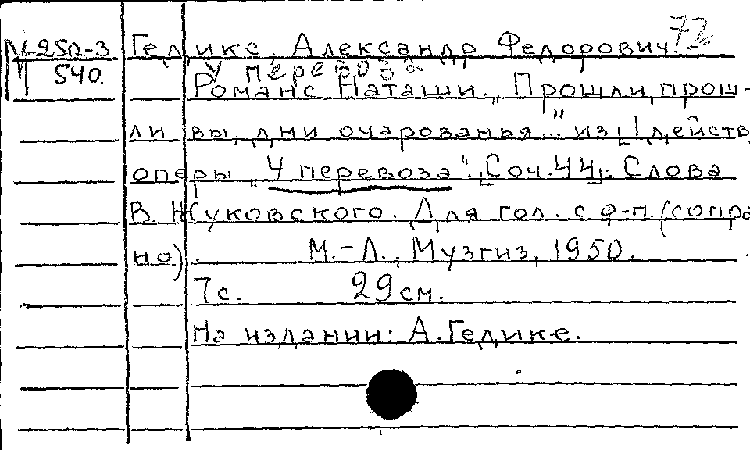 М 250-3 Гедике, Александр Федорович 72
540. У перевоза
Романс Наташи „Прошли, прош-
ли вы, дни очарованья..." из I действ
оперы „У перевоза". Соч. 44. Слова
В. Жуковского. Для гол. с ф-п. (сопра
но). М.-Л., Музгиз, 1950.
7с. 29 см.
На издании: А. Гедике.